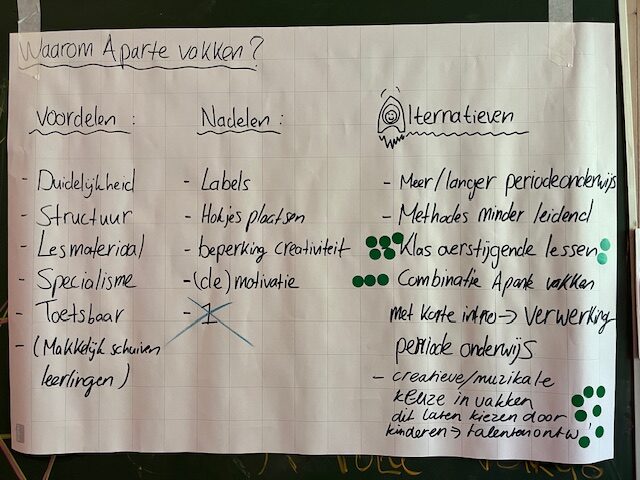 Waarom Aparte vakken?
Voordelen :
- Duidelijkheid
- Structuur
- Lesmateriaal
- Specialisme
- Toetsbaar
- (Makkelijk schuiven
leerlingen)
Nadelen :
- Labels
- Hokjes plaatsen
- beperking creativiteit
- (de) motivatie
- 1
Alternatieven
- Meer/langer periodeonderwijs
- Methodes minder leidend
Klas overstijgende lessen
Combinatie Aparte vakken
met korte intro → verwerking
periode onderwijs
- creatieve/muzikale
keuze in vakken
dit laten kiezen door
kinderen → talentenontw!